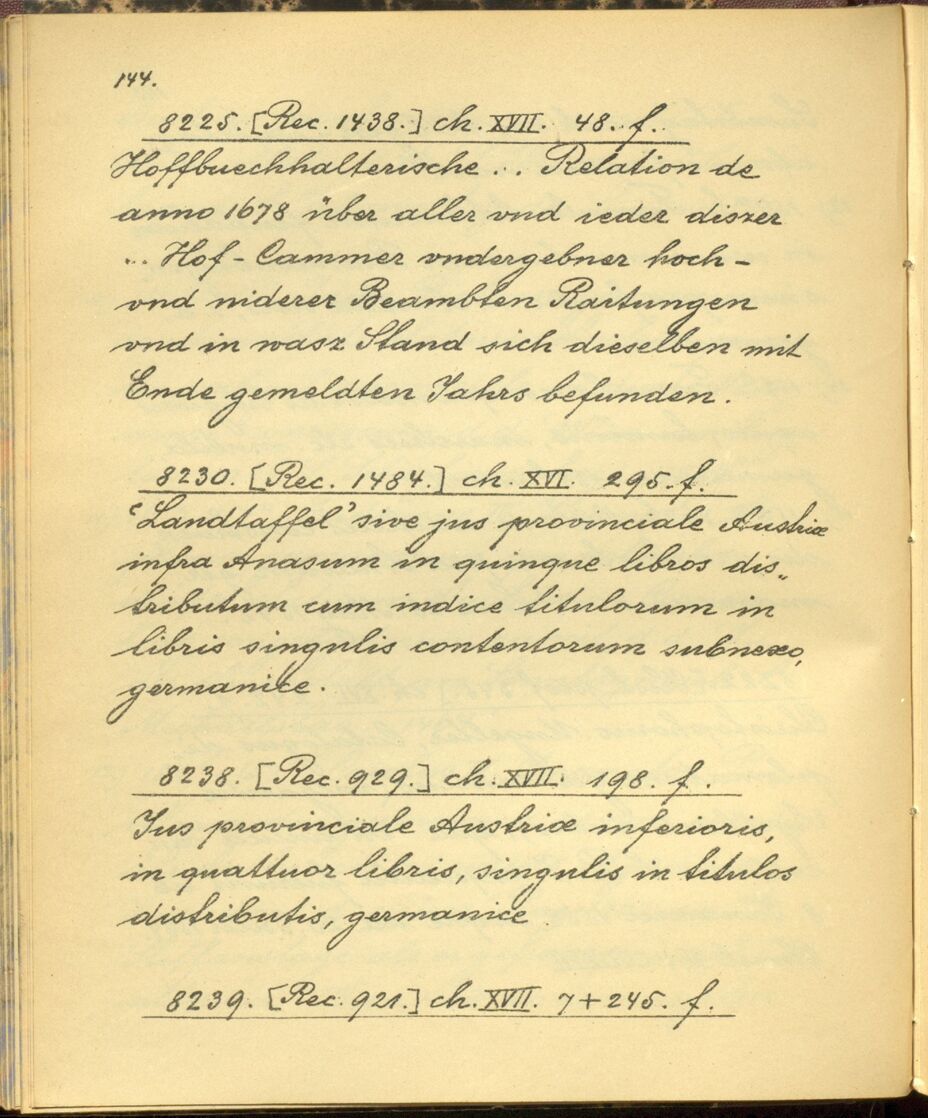 144.
8225. [Rec. 1438.] ch. XVII. 48. f.
Hoffbuechhalterische . . . Relation de
anno 1678 über aller vnd ieder diszer
... Hof-Cammer vndergebner hoch-
vnd niderer Beambten Raitungen
vnd in wasz Stand sich dieselben mit
Ende gemeldten Jahrs befunden.
8230. [Rec. 1484.] ch. XVI. 295. f.
‘Landtaffel’ sive jus provinciale Austriæ
infra Anasum in quinque libros dis„
tributum cum indice titulorum in
libris singulis contentorum subnexo,
germanice.
8238. [Rec. 929.] ch. XVII. 198. f.
Jus provinciale Austriæ inferioris,
in quattuor libris, singulis in titulos
distributis, germanice.
8239. [Rec. 921.] ch. XVII. 7+245. f.